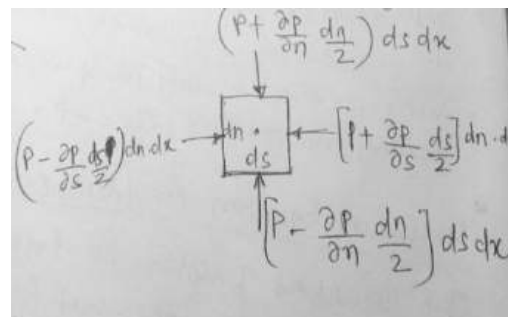 (P + ∂P/∂n dn/2) ds dx
(P - ∂P/∂s ds/2) dn dx
dn .
ds
[P + ∂P/∂s ds/2] dn . d
[P - ∂P/∂n dn/2] ds dx